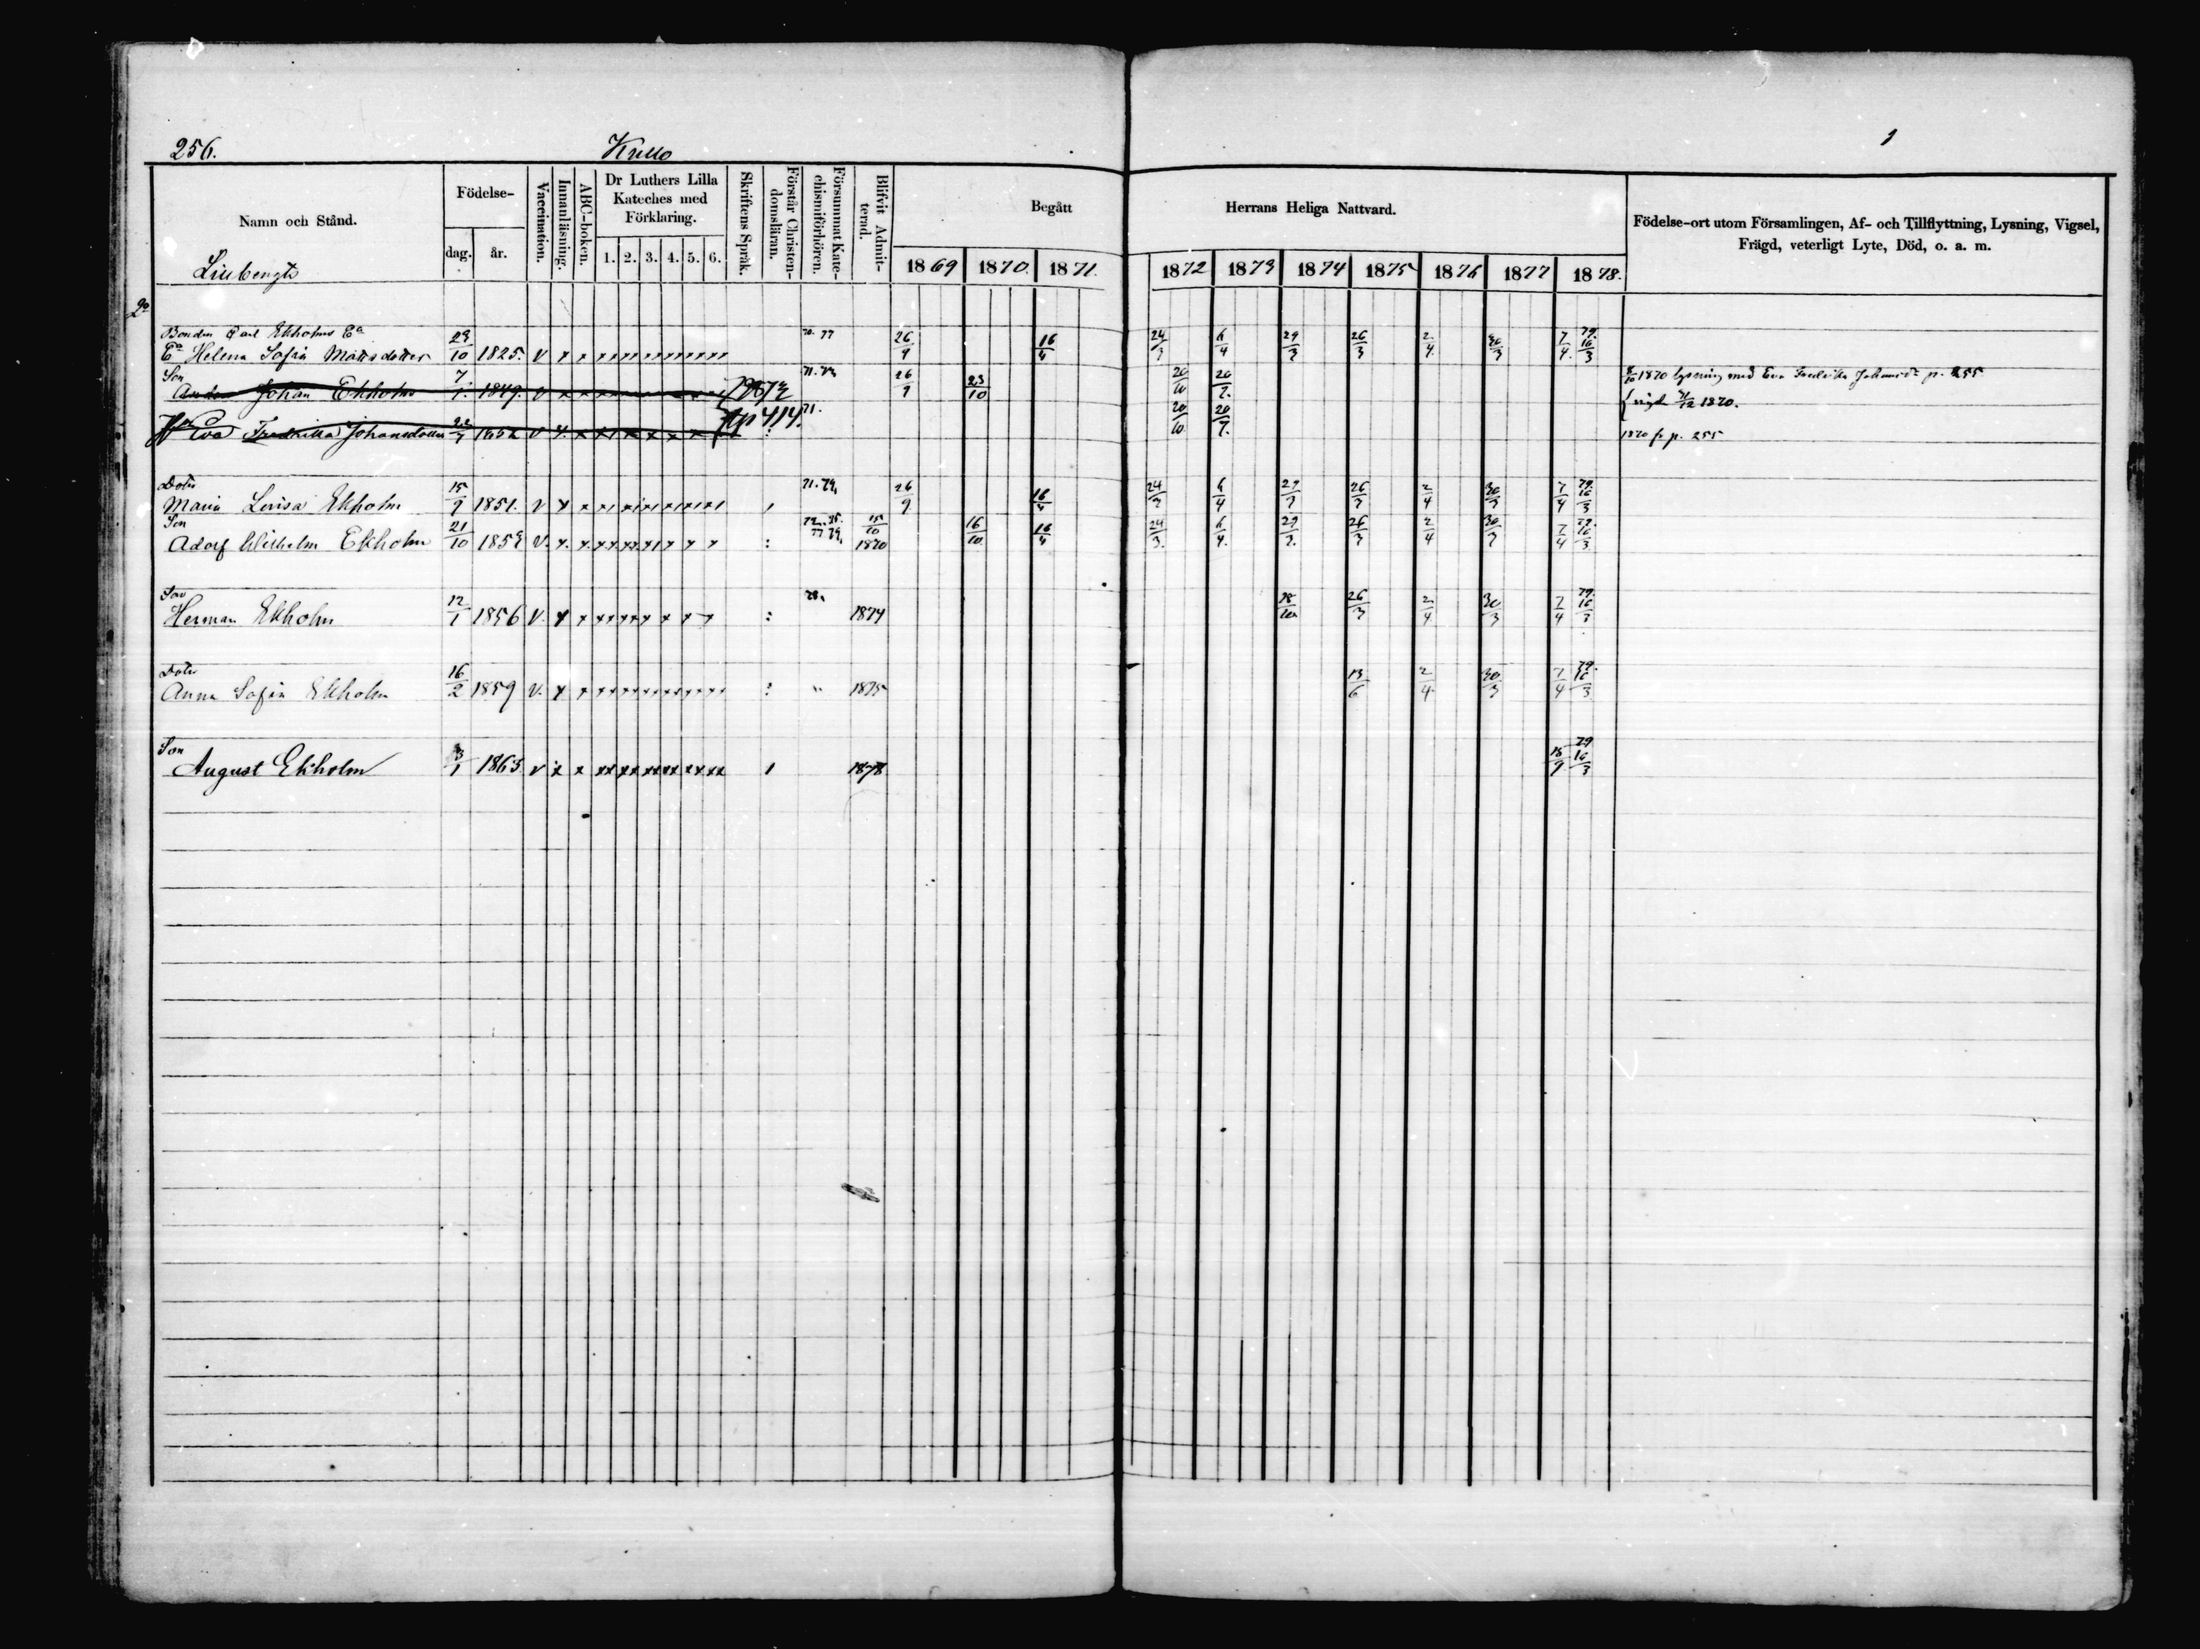 256. Kullo 1
Namn och Stånd.
Födelse-
dag. år.
Vaccination.
Innanläsning.
ABC-boken.
Dr Luthers Lilla
Kateches med
Förklaring.
1. 2. 3. 4. 5. 6.
Skriftens Språk.
Förstår Christen-
domsläran.
Försummat Kate-
chismiförhören.
Blifvit Admit-
terad.
Begått Herrans Heliga Nattvard.
1869 1870. 1871. 1872 1873 1874 1875 1876 1877 1878.
Födelse-ort utom Församlingen, Af- och Tillflyttning, Lysning, Vigsel,
Frägd, veterligt Lyte, Död, o. a. m.
Bonden Carl Ekholms Ea 70. 77
Ea Helena Sofia Mattsdotter 29/10 1825. v 26/9 16/4 24/3 6/4 29/3 26/3 2/4 30/3 7/4 79. 16/3
Son
Johan Ekholm 7/1 1849. v 26/9 23/10 20/10 20/7. 8/10 1870 lysning med Eva Fredrika Johansdr p. 255
vigde 1870.
Hu Eva Fredrika Johansdotter v p 414. 71. 20/10 20/7. 1870 fr p. 255
Dotr
Maria Lovisa Ekholm 15/9 1851. v 71. 79, 26/9 16/4 24/3 6/4 29/3 26/3 2/4 30/3 7/4 79. 16/3
Son
Adolf Wilhelm Ekholm 21/10 1853 v. 77 79, 15/10 1870 16/10 16/4 24/3. 6/4. 29/3. 26/3 2/4 30/3 7/4 79. 16/3
Son
Herman Ekholm 12/1 1856 v. : 1874 26/3 2/4 30/3 7/4 79. 16/3
Dotr
Anna Sofia Ekholm 16/2 1859 v. : " 1875 13/6 2/4 30/3 7/4 79. 16/3
Son
August Ekholm 3/1 1863. v 1878 15/9 79 16/3